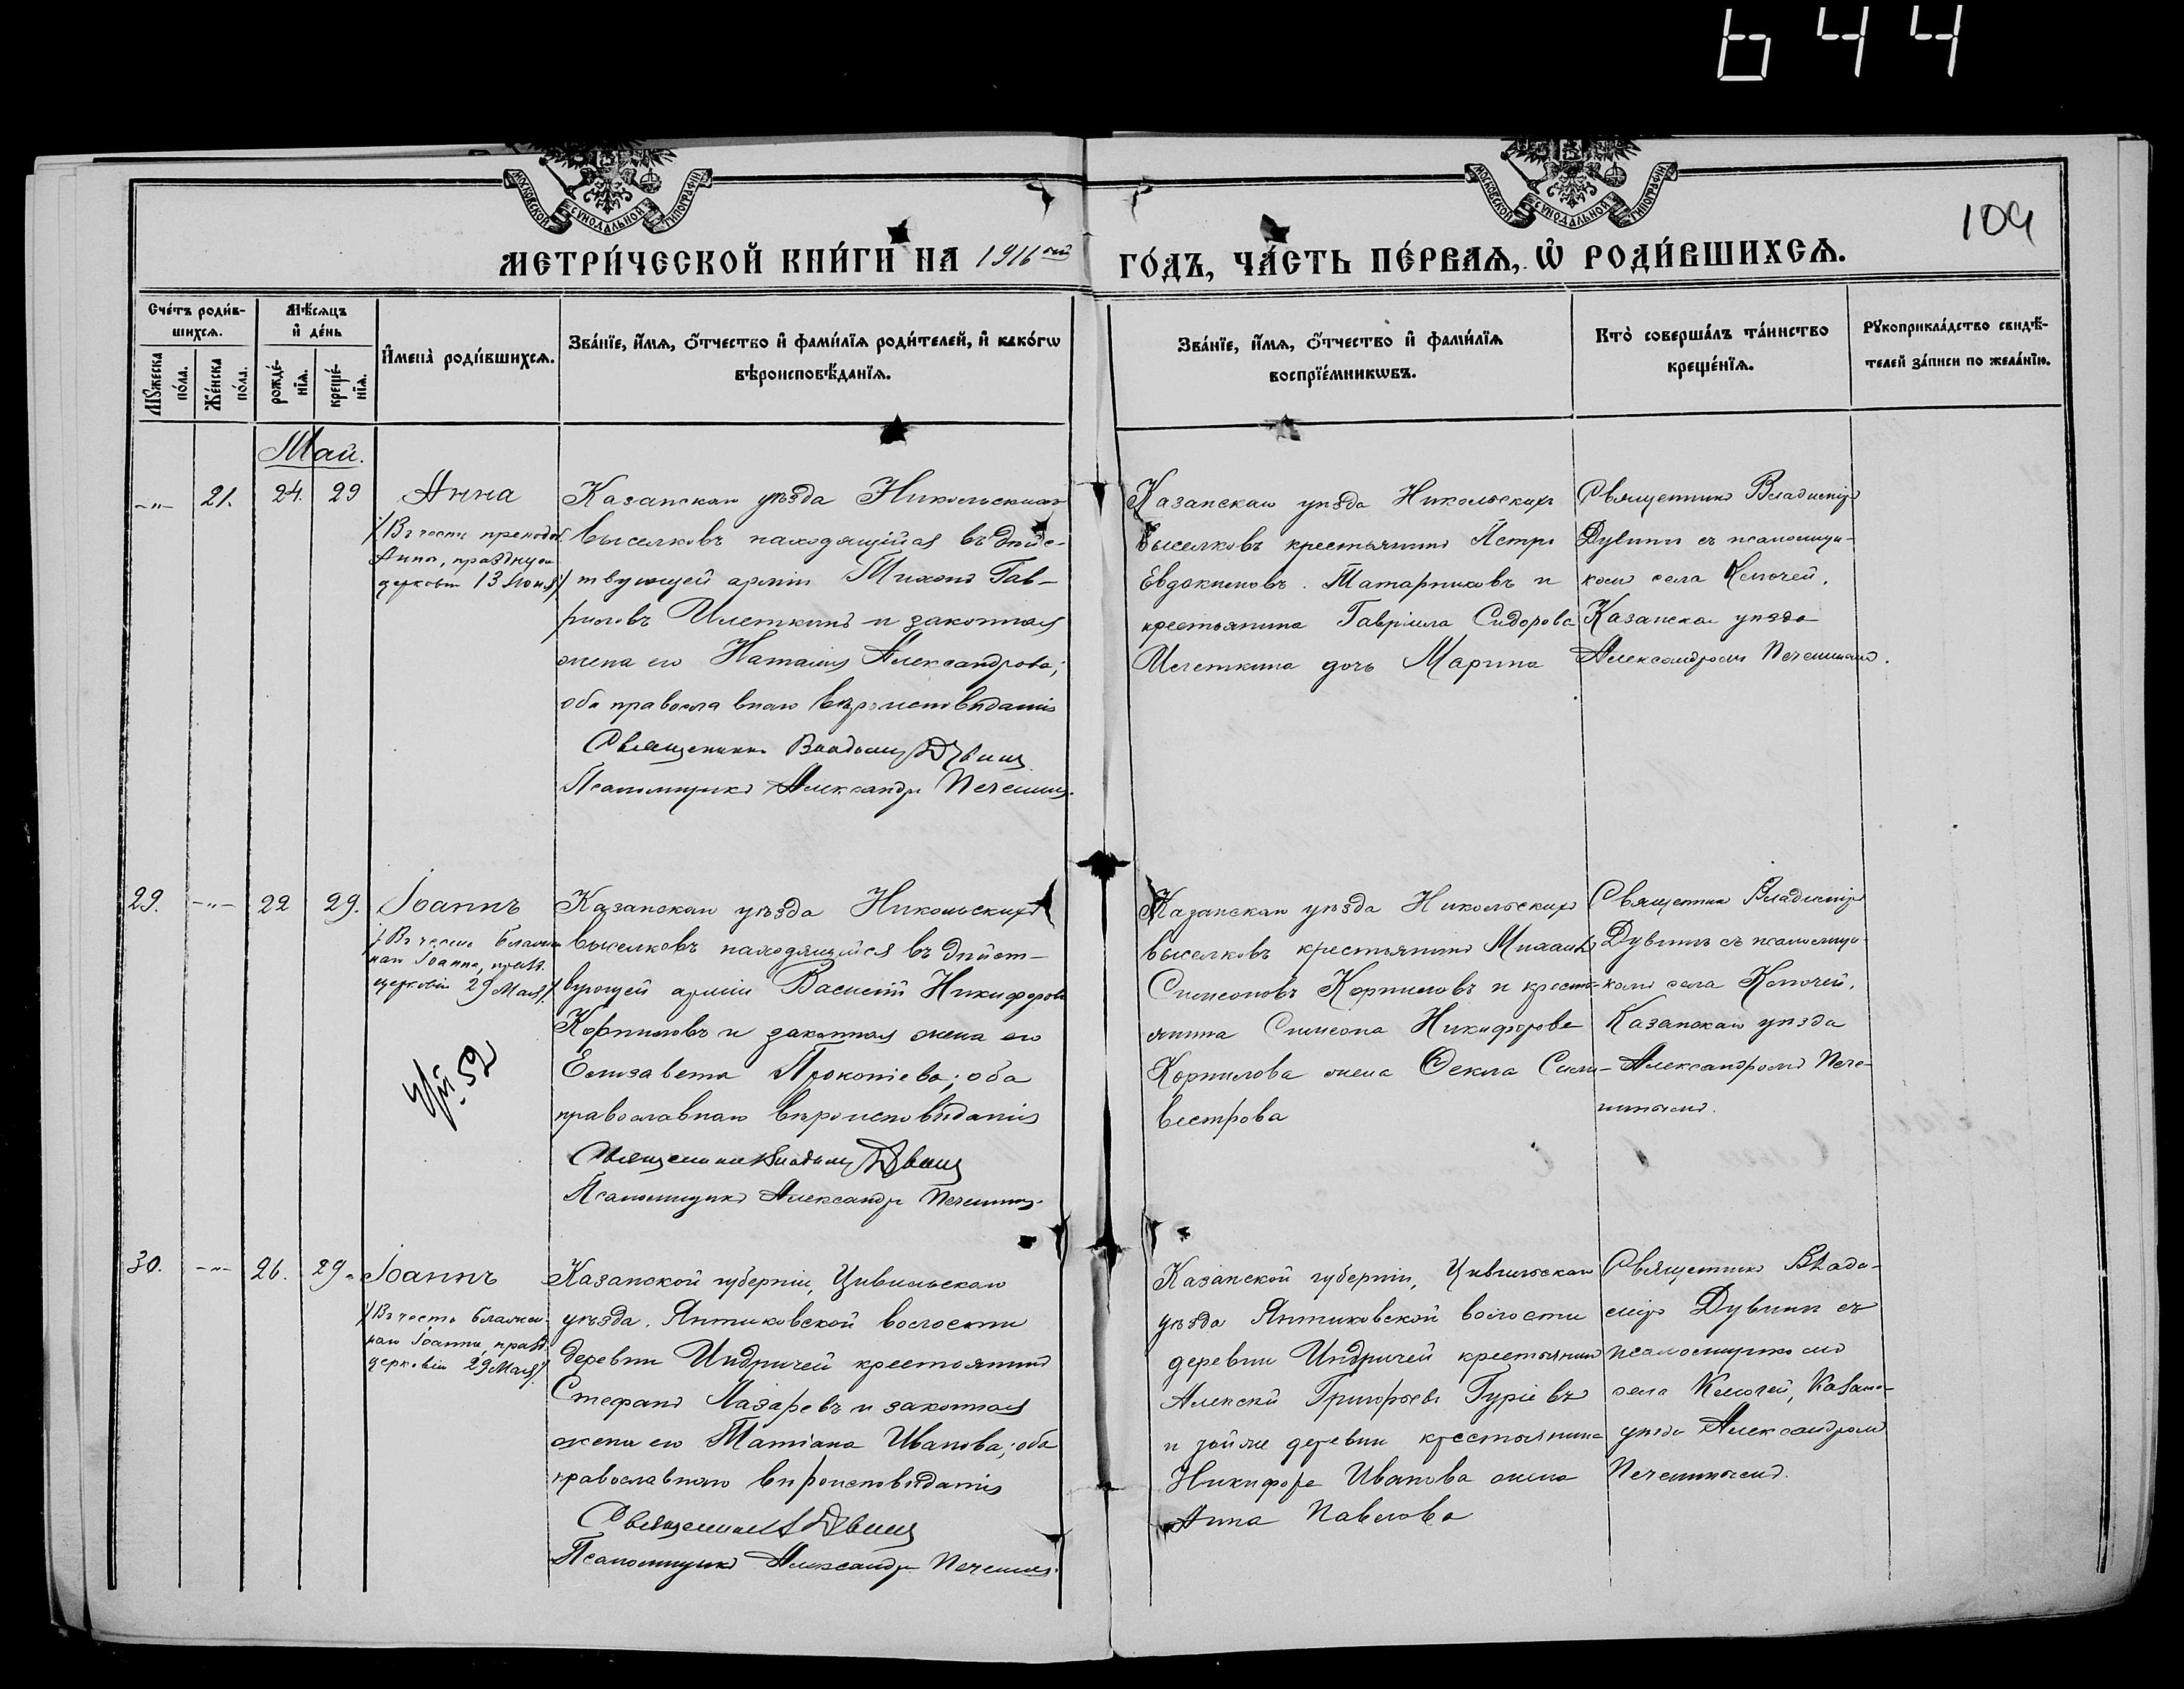 644
МОСКОВСКОЙ СѴНОДАЛЬНОЙ ТИПОГРАФІИ
МОСКОВСКОЙ СѴНОДАЛЬНОЙ ТИПОГРАФІИ
104
МЕТРИ́ЧЕСКОЙ КНИ́ГИ НА 1916ый ГО́ДЪ, ЧА́СТЬ ПЕ́РВАѦ, Ѡ҆ РОДИ́ВШИХСѦ.
Сче́тъ роди́в-
шихсѧ.
Мꙋ́жеска
по́ла.
Же́нска
по́ла.
Мѣ́сѧцъ
и҆ де́нь
рожде́-
нїѧ.
креще́-
нїѧ.
И҆мена̀ роди́вшихсѧ.
Зва́нїе, и҆́мѧ, ѻ҆́тчество и҆ фами́лїѧ роди́телей, и҆ како́гѡ
вѣроисповѣ́данїѧ.
Зва́нїе, и҆́мѧ, ѻ҆́тчество и҆ фами́лїѧ
воспрїе́мникѡвъ.
Кто̀ соверша́лъ та́инство
креще́нїѧ.
Рꙋкоприкла́дство свидѣ́-
телей за́писи по жела́нїю.
Май.
-"- 21. 24. 29
Анна
/Въ честь преподоб.
Анны, празднуем.
церковію 13 Іюня/
Казанскаго уѣзда Никольскихъ
выселковъ находящійся въ дѣйс-
твующей арміи Тихонъ Гав-
риловъ Шлеткинъ и законная
жена его Наталія Александрова;
оба православнаго вѣроисповѣданія
Священникъ Владиміръ Дувинъ
Псаломщикъ Александръ Печенинъ.
Казанскаго уѣзда Никольскихъ
выселковъ крестьянинъ Петръ
Евдокимовъ Татарниковъ и
крестьянина Гавріила Сидорова
дочь Марина
Священникъ Владиміръ
Дувинъ съ псаломщи-
комъ села Ключей,
Казанскаго уѣзда
Александромъ Печенинымъ.
29. -"- 22 29.
Іоаннъ
/Въ честь блажен-
наго Іоанна, празд.
церковію 29 Мая/
52
Казанскаго уѣзда Никольскихъ
выселковъ находящійся въ дѣйст-
вующей арміи Василій Никифоровъ
Корниловъ и законная жена его
Елизавета Прокопіева; оба
православнаго вѣроисповѣданія
Священникъ Владиміръ Дувинъ
Псаломщикъ Александръ Печенинъ.
Казанскаго уѣзда Никольскихъ
выселковъ крестьянинъ Михаилъ
Симеоновъ Корниловъ и кресть-
янина Симеона Никифорова
Корнилова жена Ѳекла Силь-
вестрова
Священникъ Владиміръ
Дувинъ съ псаломщи-
комъ села Ключей,
Казанскаго уѣзда
Александромъ Пече-
нинымъ.
30. -"- 26. 29.
Іоаннъ
/Въ честь блажен-
наго Іоанна, празд.
церковію 29 Мая/
Казанской губерніи, Цивильскаго
уѣзда, Янтиковской волости
деревни Индричей крестьянинъ
Стефанъ Лазаревъ и законная
жена его Татіана Иванова; оба
православнаго вѣроисповѣданія
Священникъ Дувинъ
Псаломщикъ Александръ Печенинъ.
Казанской губерніи, Цивильскаго
уѣзда Янтиковской волости
деревни Индричей крестьянинъ
Алексѣй Григорьевъ Гуріевъ
и той же деревни крестьянина
Никифора Иванова жена
Анна Павлова
Священникъ Влади-
міръ Дувинъ съ
псаломщикомъ
села Ключей, Казанс-
уѣзда Александромъ
Печенинымъ.